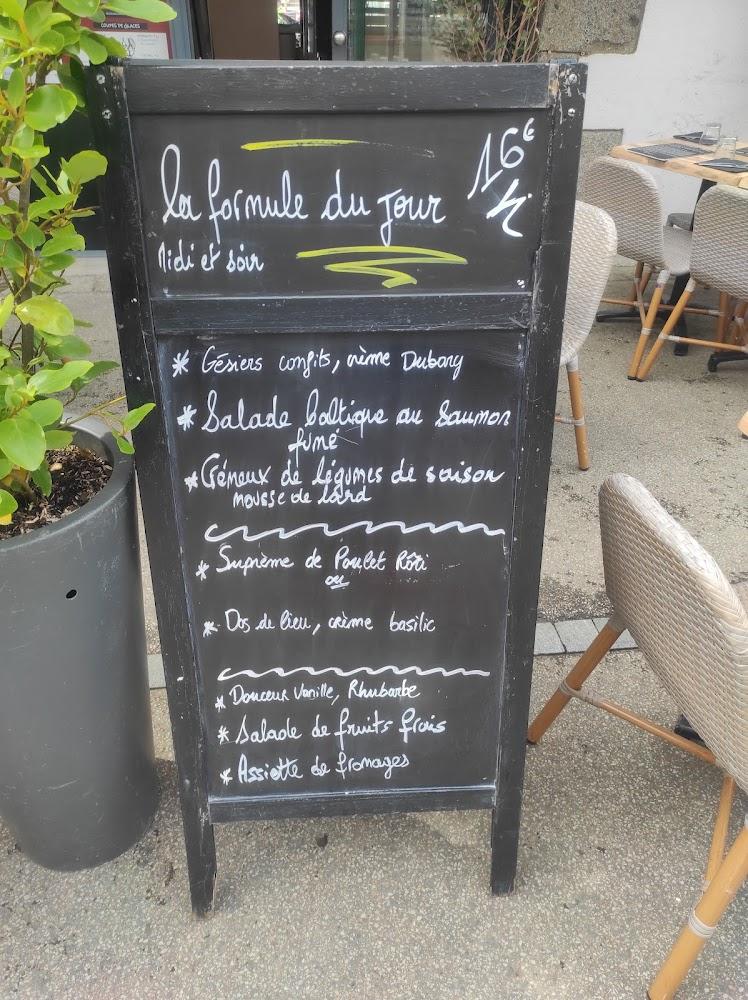 COUPES DE GLACES
la formule du jour
16€
Midi et soir
* Gésiers confits, crème Dubary
* Salade baltique au saumon
fumé
* Crémeux de légumes de saison
mousse de lard
* Suprême de Poulet Rôti
ou
* Dos de lieu, crème basilic
* Douceur Vanille, Rhubarbe
* Salade de fruits frais
* Assiette de fromages